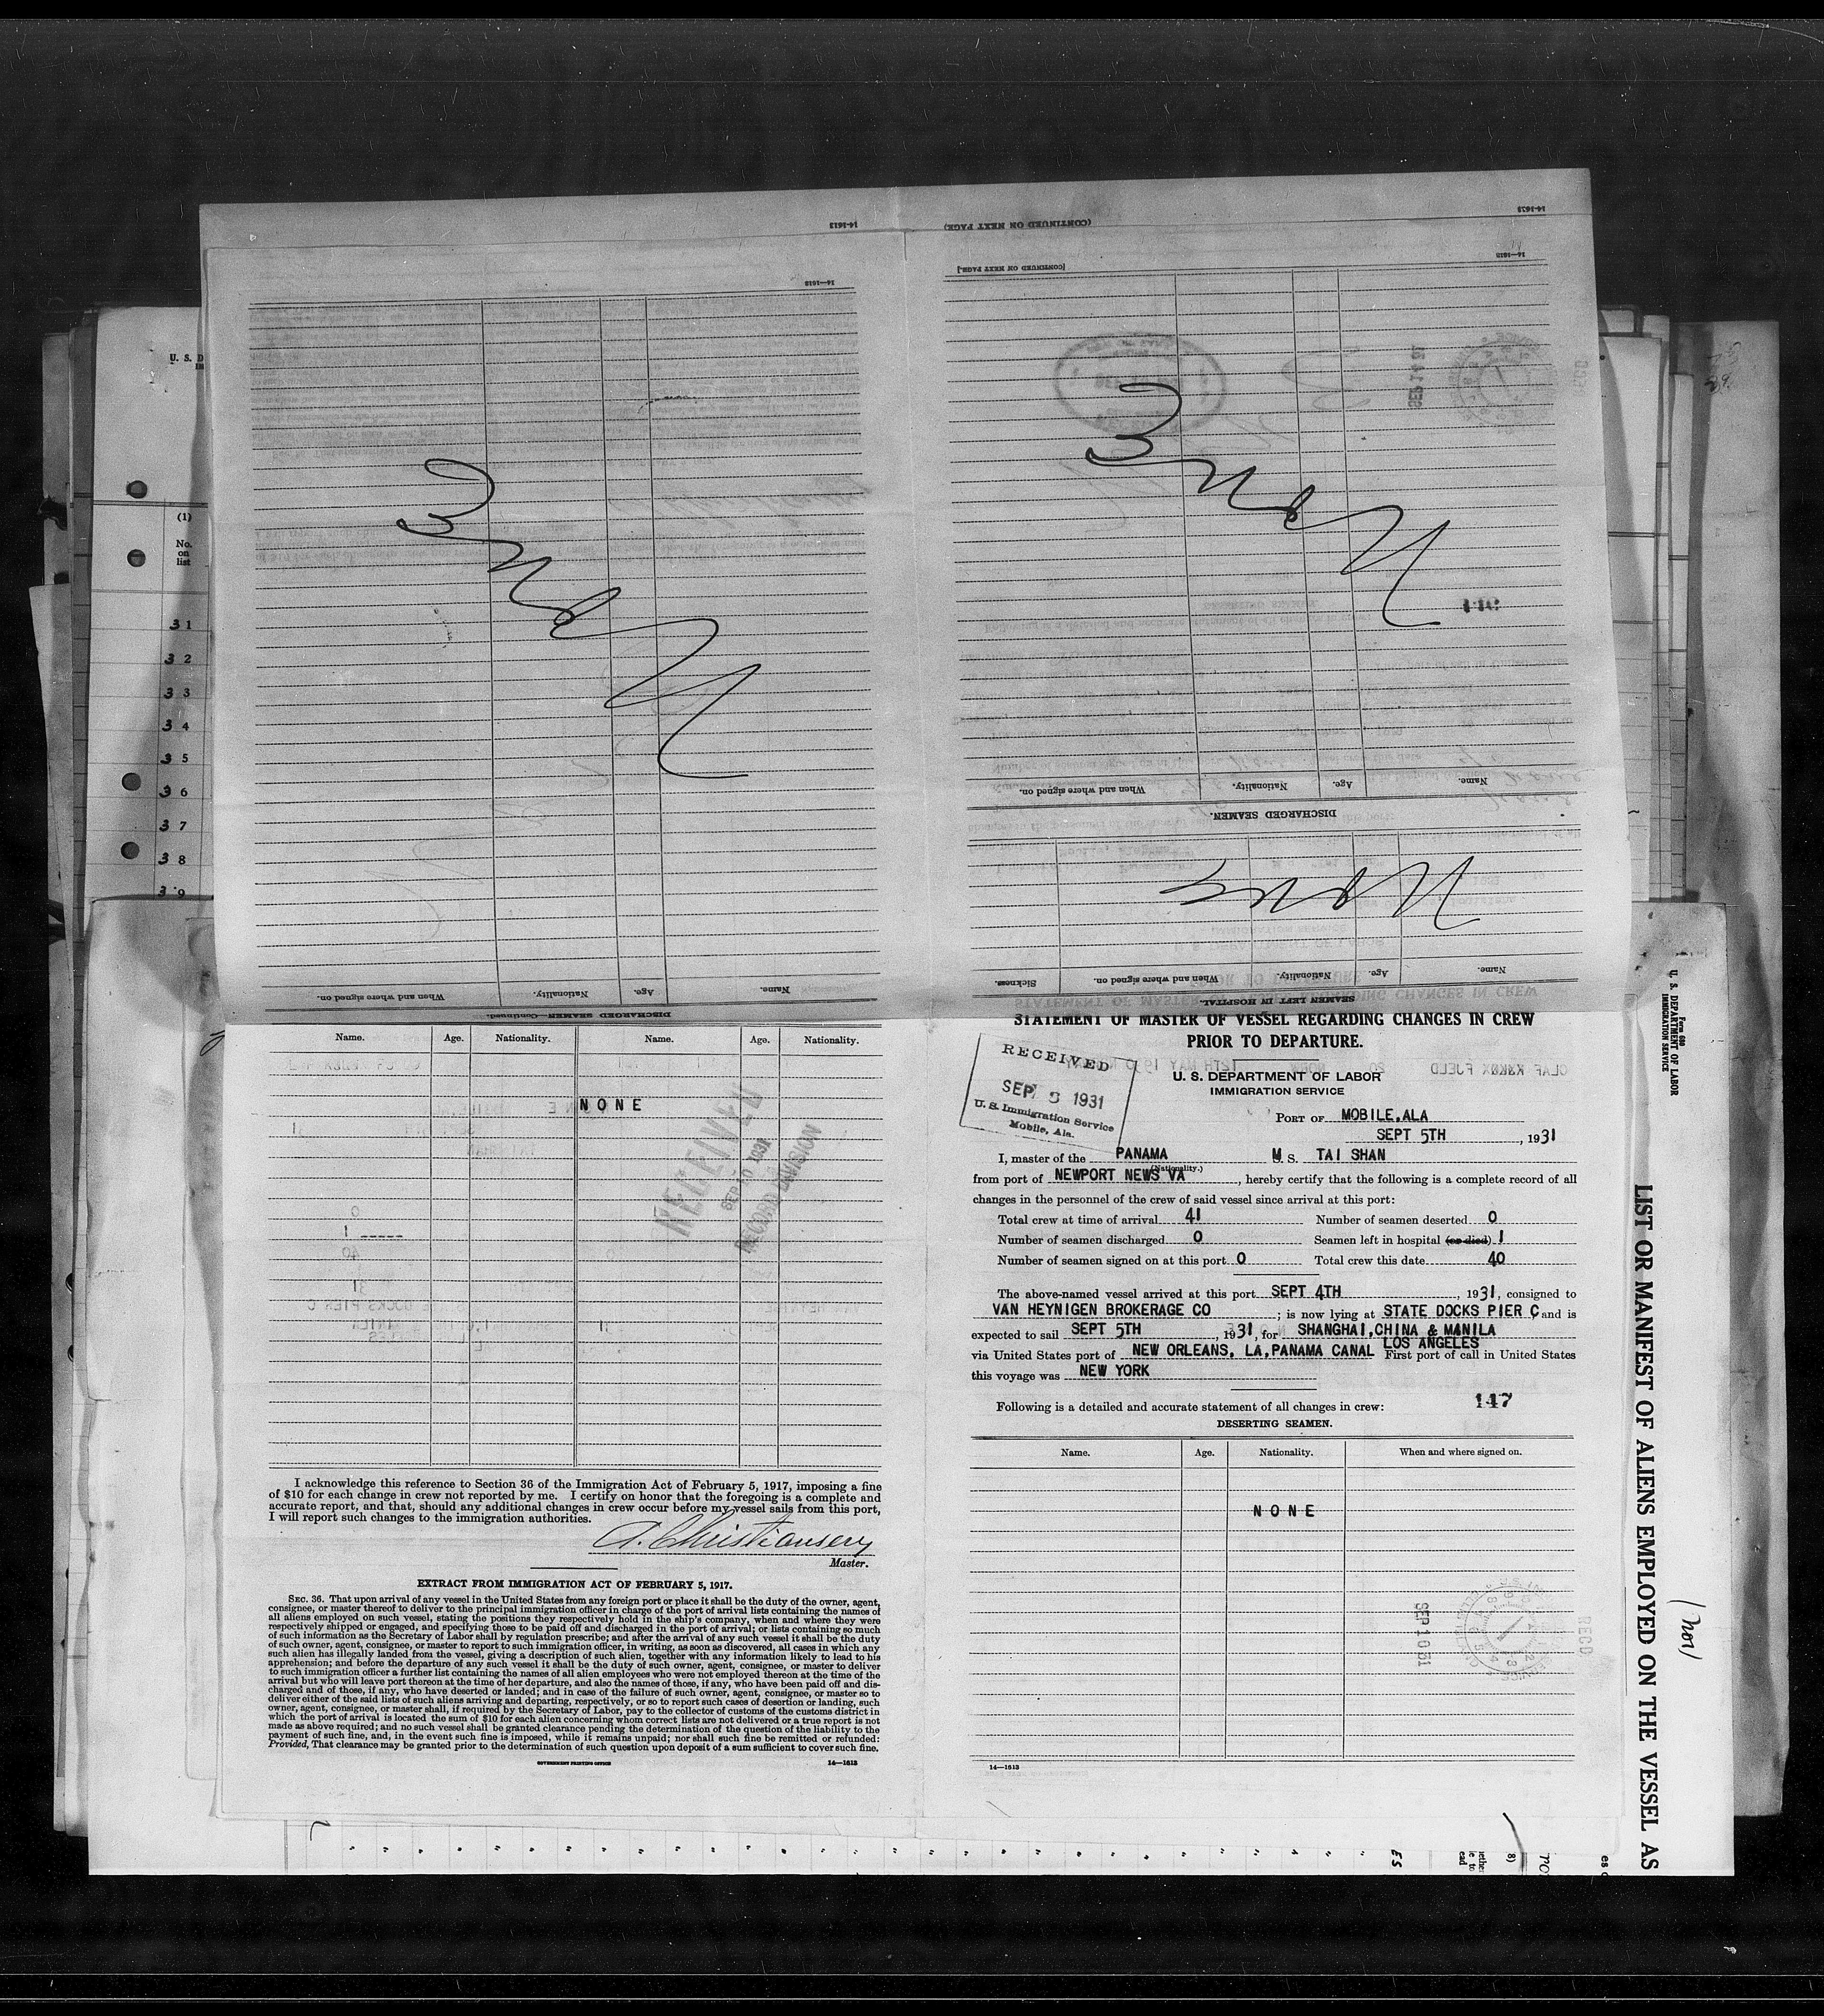 14-1613
(CONTINUED ON NEXT PAGE)
14-1613
14—1613
[CONTINUED ON NEXT PAGE.]
14—1613
U. S. D
(1)
No.
on
list
31
32
33
34
35
36
37
38
39
None
When and where signed on.
Nationality.
Age.
Name.
DISCHARGED SEAMEN—Continued.
SEP 14 31
None
116
Name.
Age.
Nationality.
When and where signed on.
DISCHARGED SEAMEN.
None
Name.
Age.
Nationality.
When and where signed on.
Sickness.
SEAMEN LEFT IN HOSPITAL.
Name. Age. Nationality. Name. Age. Nationality.
NONE
RECEIVED
SEP 10 1931
RECORD DIVISION
I acknowledge this reference to Section 36 of the Immigration Act of February 5, 1917, imposing a fine
of $10 for each change in crew not reported by me. I certify on honor that the foregoing is a complete and
accurate report, and that, should any additional changes in crew occur before my vessel sails from this port,
I will report such changes to the immigration authorities.
A. Christiansen
Master.
EXTRACT FROM IMMIGRATION ACT OF FEBRUARY 5, 1917.
SEC. 36. That upon arrival of any vessel in the United States from any foreign port or place it shall be the duty of the owner, agent,
consignee, or master thereof to deliver to the principal immigration officer in charge of the port of arrival lists containing the names of
all aliens employed on such vessel, stating the positions they respectively hold in the ship's company, when and where they were
respectively shipped or engaged, and specifying those to be paid off and discharged in the port of arrival; or lists containing so much
of such information as the Secretary of Labor shall by regulation prescribe; and after the arrival of any such vessel it shall be the duty
of such owner, agent, consignee, or master to report to such immigration officer, in writing, as soon as discovered, all cases in which any
such alien has illegally landed from the vessel, giving a description of such alien, together with any information likely to lead to his
apprehension; and before the departure of any such vessel it shall be the duty of such owner, agent, consignee, or master to deliver
to such immigration officer a further list containing the names of all alien employees who were not employed thereon at the time of the
arrival but who will leave port thereon at the time of her departure, and also the names of those, if any, who have been paid off and dis-
charged and of those, if any, who have deserted or landed; and in case of the failure of such owner, agent, consignee, or master so to
deliver either of the said lists of such aliens arriving and departing, respectively, or so to report such cases of desertion or landing, such
owner, agent, consignee, or master shall, if required by the Secretary of Labor, pay to the collector of customs of the customs district in
which the port of arrival is located the sum of $10 for each alien concerning whom correct lists are not delivered or a true report is not
made as above required; and no such vessel shall be granted clearance pending the determination of the question of the liability to the
payment of such fine, and, in the event such fine is imposed, while it remains unpaid; nor shall such fine be remitted or refunded:
Provided, That clearance may be granted prior to the determination of such question upon deposit of a sum sufficient to cover such fine.
GOVERNMENT PRINTING OFFICE 14—1613
STATEMENT OF MASTER OF VESSEL REGARDING CHANGES IN CREW
PRIOR TO DEPARTURE.
RECEIVED
SEP 5 1931
U. S. Immigration Service
Mobile, Ala.
U. S. DEPARTMENT OF LABOR
IMMIGRATION SERVICE
PORT OF MOBILE, ALA
SEPT 5TH, 1931
I, master of the PANAMA M.S. TAI SHAN
(Nationality.)
from port of NEWPORT NEWS VA, hereby certify that the following is a complete record of all
changes in the personnel of the crew of said vessel since arrival at this port:
Total crew at time of arrival 41 Number of seamen deserted 0
Number of seamen discharged 0 Seamen left in hospital (or died) 1
Number of seamen signed on at this port 0 Total crew this date 40
The above-named vessel arrived at this port SEPT 4TH, 1931, consigned to
VAN HEYNIGEN BROKERAGE CO; is now lying at STATE DOCKS PIER C and is
expected to sail SEPT 5TH, 1931, for SHANGHAI, CHINA & MANILA
LOS ANGELES
via United States port of NEW ORLEANS, LA, PANAMA CANAL First port of call in United States
this voyage was NEW YORK
147
Following is a detailed and accurate statement of all changes in crew:
DESERTING SEAMEN.
Name. Age. Nationality. When and where signed on.
NONE
SEP 10 31
RECD
14—1613
Form 680
U. S. DEPARTMENT OF LABOR
IMMIGRATION SERVICE
LIST OR MANIFEST OF ALIENS EMPLOYED ON THE VESSEL AS